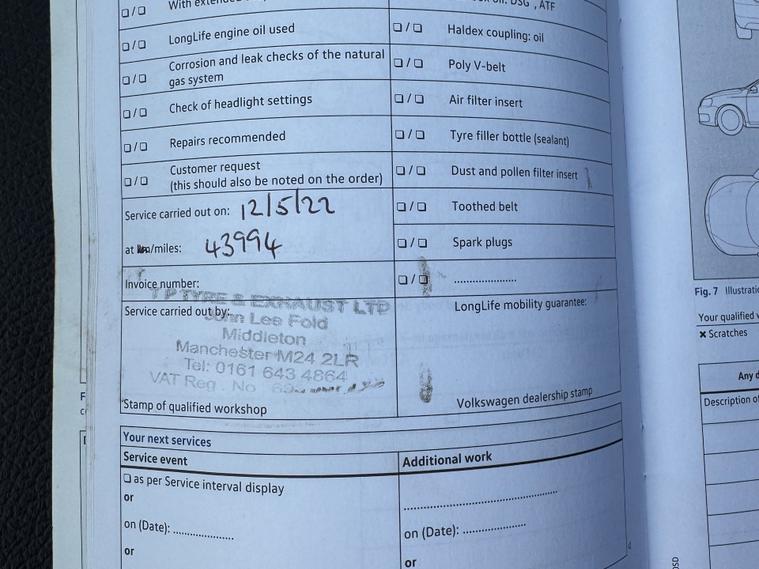 With extended
❏ / ❏ LongLife engine oil used
❏ / ❏ Corrosion and leak checks of the natural
gas system
❏ / ❏ Check of headlight settings
❏ / ❏ Repairs recommended
❏ / ❏ Customer request
(this should also be noted on the order)
Service carried out on: 12/5/22
at km/miles: 43994
Invoice number:
Service carried out by:
T P TYRE & EXHAUST LTD
John Lee Fold
Middleton
Manchester M24 2LR
Tel: 0161 643 4864
VAT Reg. No
Stamp of qualified workshop
oil: DSG, ATF
❏ / ❏ Haldex coupling: oil
❏ / ❏ Poly V-belt
❏ / ❏ Air filter insert
❏ / ❏ Tyre filler bottle (sealant)
❏ / ❏ Dust and pollen filter insert
❏ / ❏ Toothed belt
❏ / ❏ Spark plugs
❏ / ❏ ....................
LongLife mobility guarantee:
Volkswagen dealership stamp
Your next services
Service event
❏ as per Service interval display
or
on (Date): ...................
or
Additional work
..................................................
on (Date): ....................
or
Fig. 7 Illustrati
Your qualified
✖ Scratches
Any d
Description of